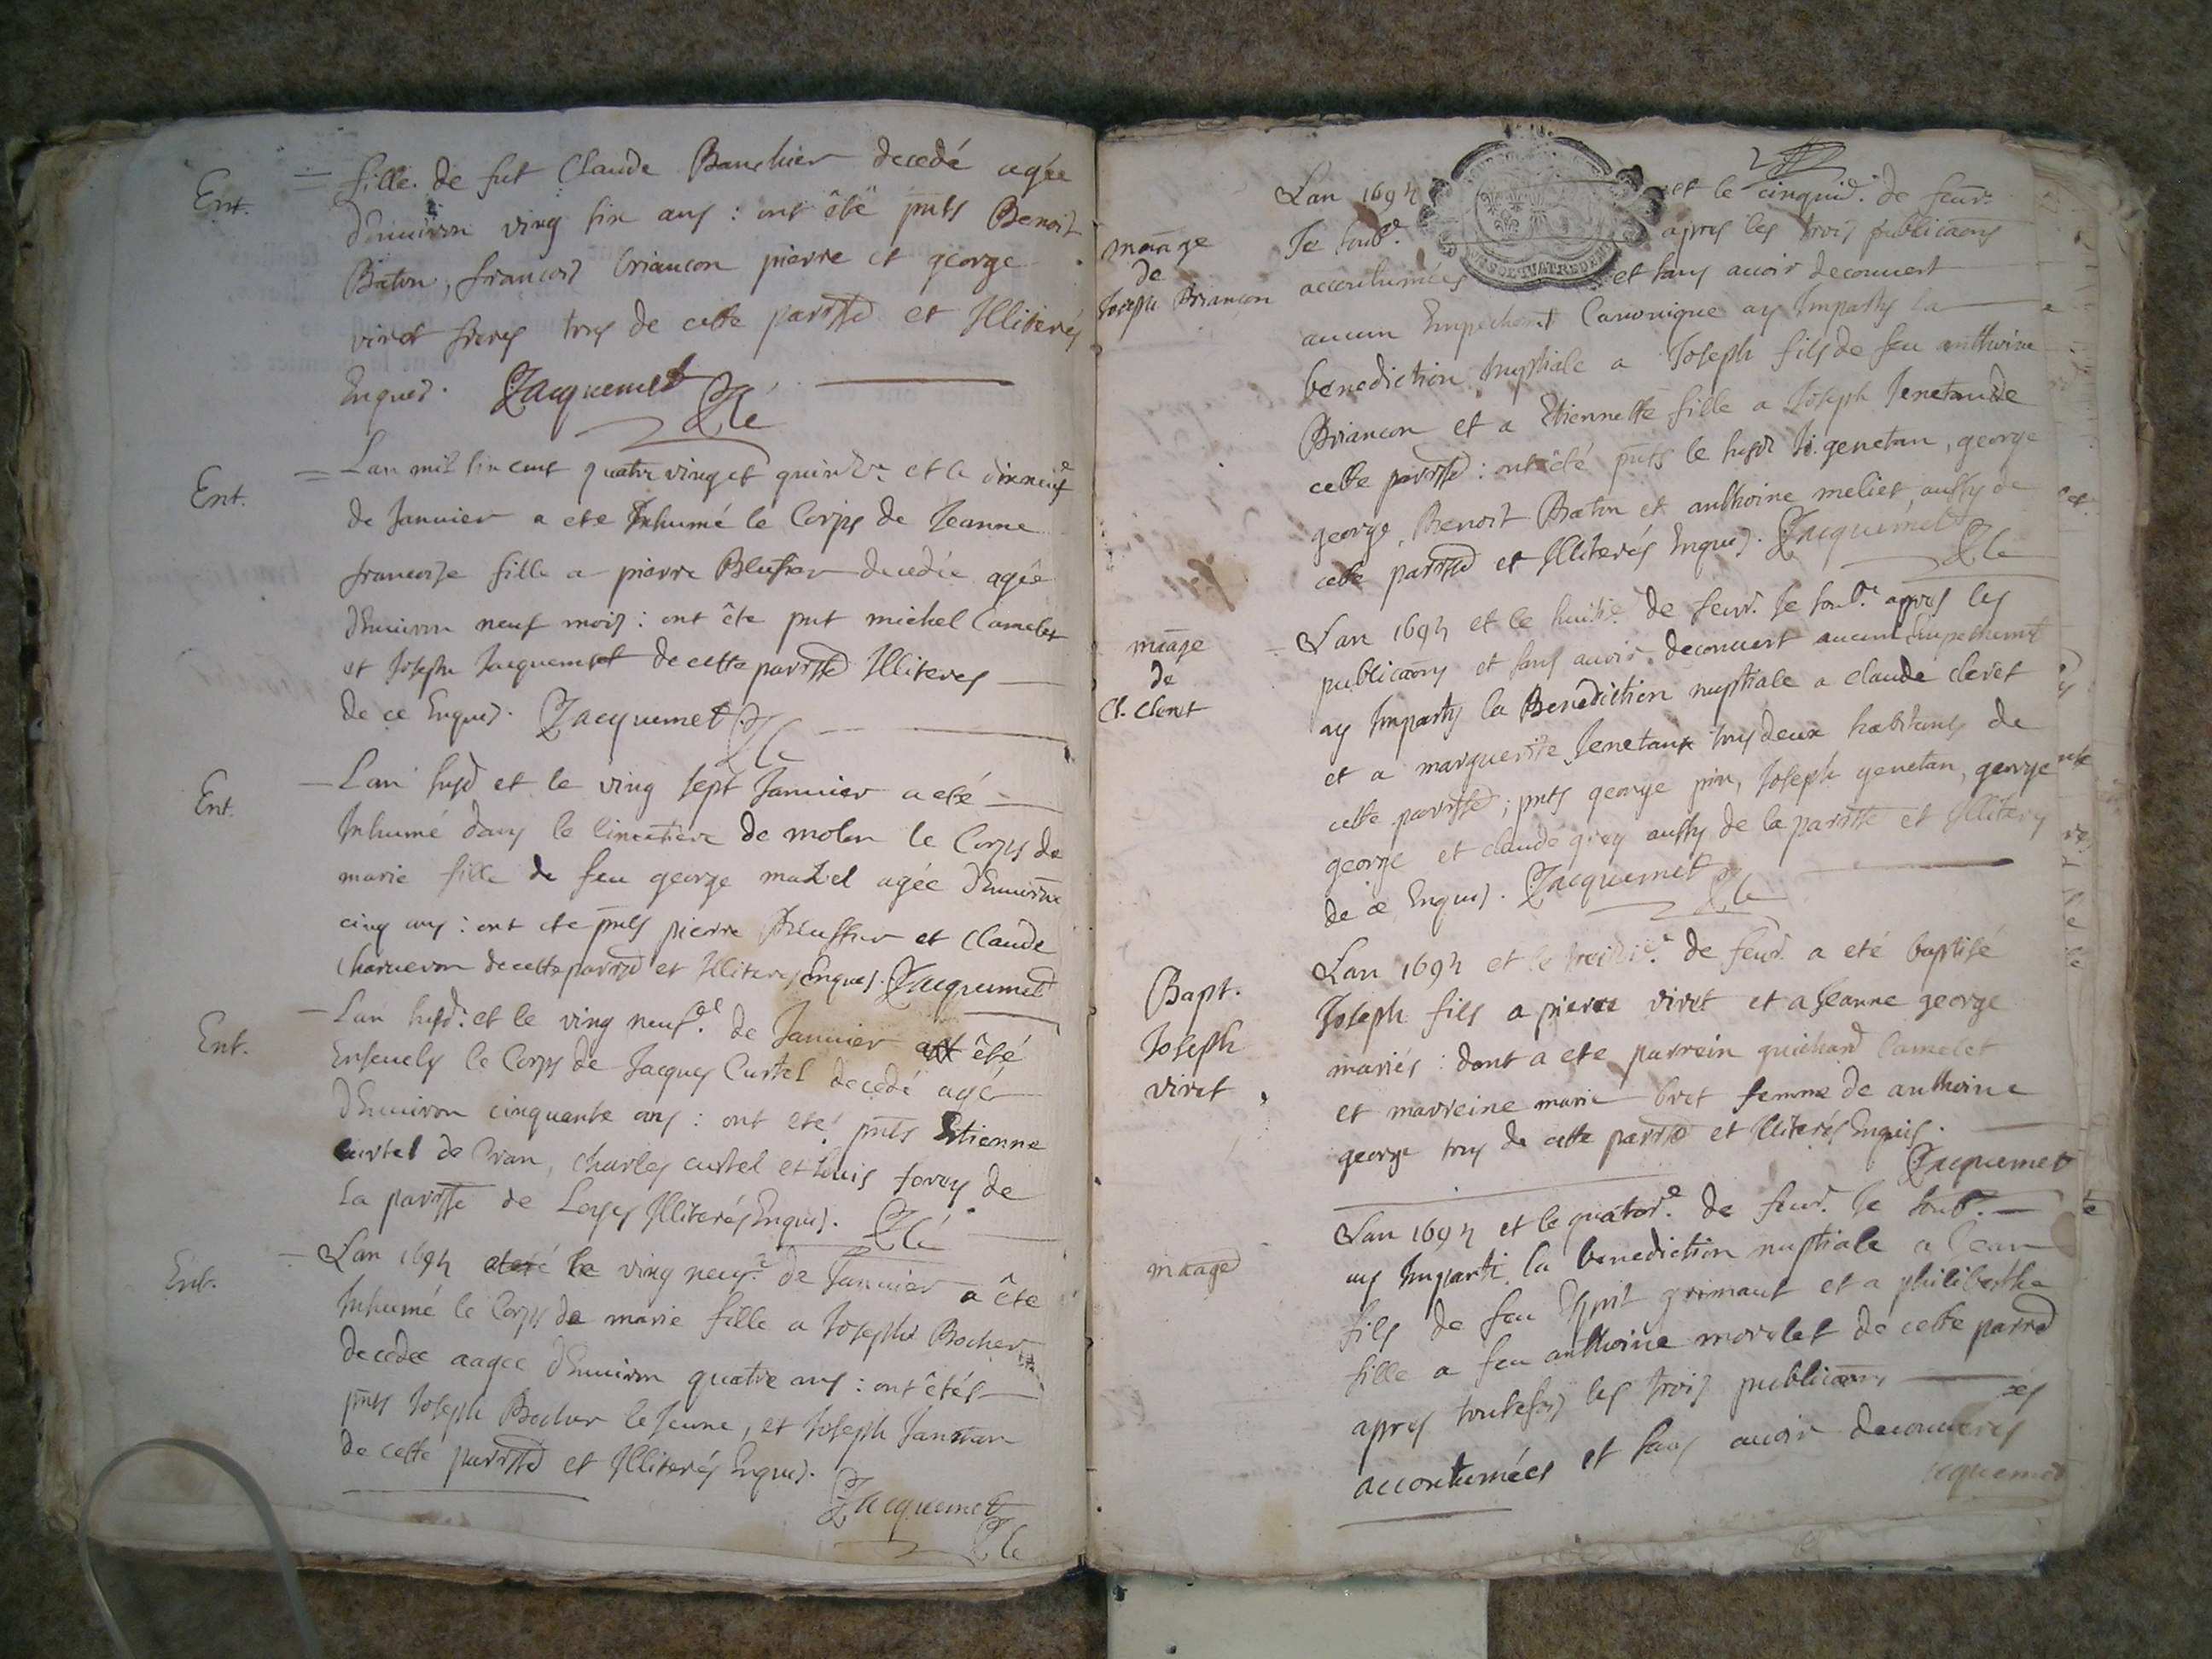 Ent.
fille de fut Claude Banchier decedé agée
d'Enuiron ving six ans : ont êté pnts Benoit
Baton, francois briancon pierre et george
viret freres tous de cette parisse et Illiterés
Enquis. Jacquemet
Ent.
Lan mil six cent quatre vinget quinze et le dixneuf
de Januier a ete Inhumé le Corps de Jeanne
francoise fille a pierre decedée agée
d'Enuiron neuf mois : ont éte pnt michel Camelet
et Joseph Jacquemet de cette parisse Illiteres
de ce Enquis. Jacquemet
Ent.
Lan susd et le ving sept Januier a eté
Inhumé dans le Cimetiere de le Corps de
marie fille de feu george mazel agée d'Enuiron
cinq ans : ont ete pnts pierre et Claude
charueron de cette parisse et Illiteres Enquis. Jacquemet
Ent.
Lan susd. et le ving neuf.e de Januier a été
Enseuely le Corps de Jacques Curtel decedé agé
d'Enuiron cinquante ans : ont eté pnts Estienne
curtel de charles curtel et louis de
la parisse de Illiterés Enquis.
Ent.
Lan 1695 le ving neuf.e de Januier a éte
Inhumé le Corps de marie fille a Joseph Bocher
decedee aagee d'Enuiron quatre ans : ont êtés
pnts Joseph Bocher le Jeune, et Joseph
de cette parisse et Illiterés Enquis.
Jacquemet
mãage
de
Joseph Briancon
Lan 1695 et le cinquie. de feur.
Je soub.e apres les trois publicaons
accoutumées et sans auoir decouuert
aucun Empechemt Canonique ay Imparty la
benediction nuptiale a Joseph fils de feu anthoine
Briancon et a Etiennette fille a Joseph Jenetan de
cette parisse : ont eté pnts le susd Jo. genetan, george
george, Benoit Baton et anthoine meliet aussy de
cette parisse et Illiterés Enquis. Jacquemet
mãage
de
Cl. Cleret
Lan 1695 et le huitie. de feur. Je soub.e apres les
publicaons et sans auoir decouuert aucun Empechemt
ay Imparty la Benediction nuptiale a claude cleret
et a marguerite Jenetan tous deux habitants de
cette parisse ; pnts george pin, Joseph genetan, george
george et claude grey aussy de la parisse et Illiteres
de ce Enquis. Jacquemet
Bapt.
Joseph
viret
Lan 1695 et le treizie. de feur. a eté baptisé
Joseph fils a pierre viret et a Jeanne george
mariés : dont a ete parrein guichard Camelet
et marreine marie bret femme de anthoine
george tous de cette parisse et Illiterés Enquis.
Jacquemet
mãage
Lan 1695 et le quator.e de feur. Je soub.e
ay Imparti la benediction nuptiale a Jean
fils de feu Esprit grimaut et a philiberthe
fille a feu anthoine morelet de cette parisse
apres toutefois les trois publicaons
accoutumées et sans auoir decouuert